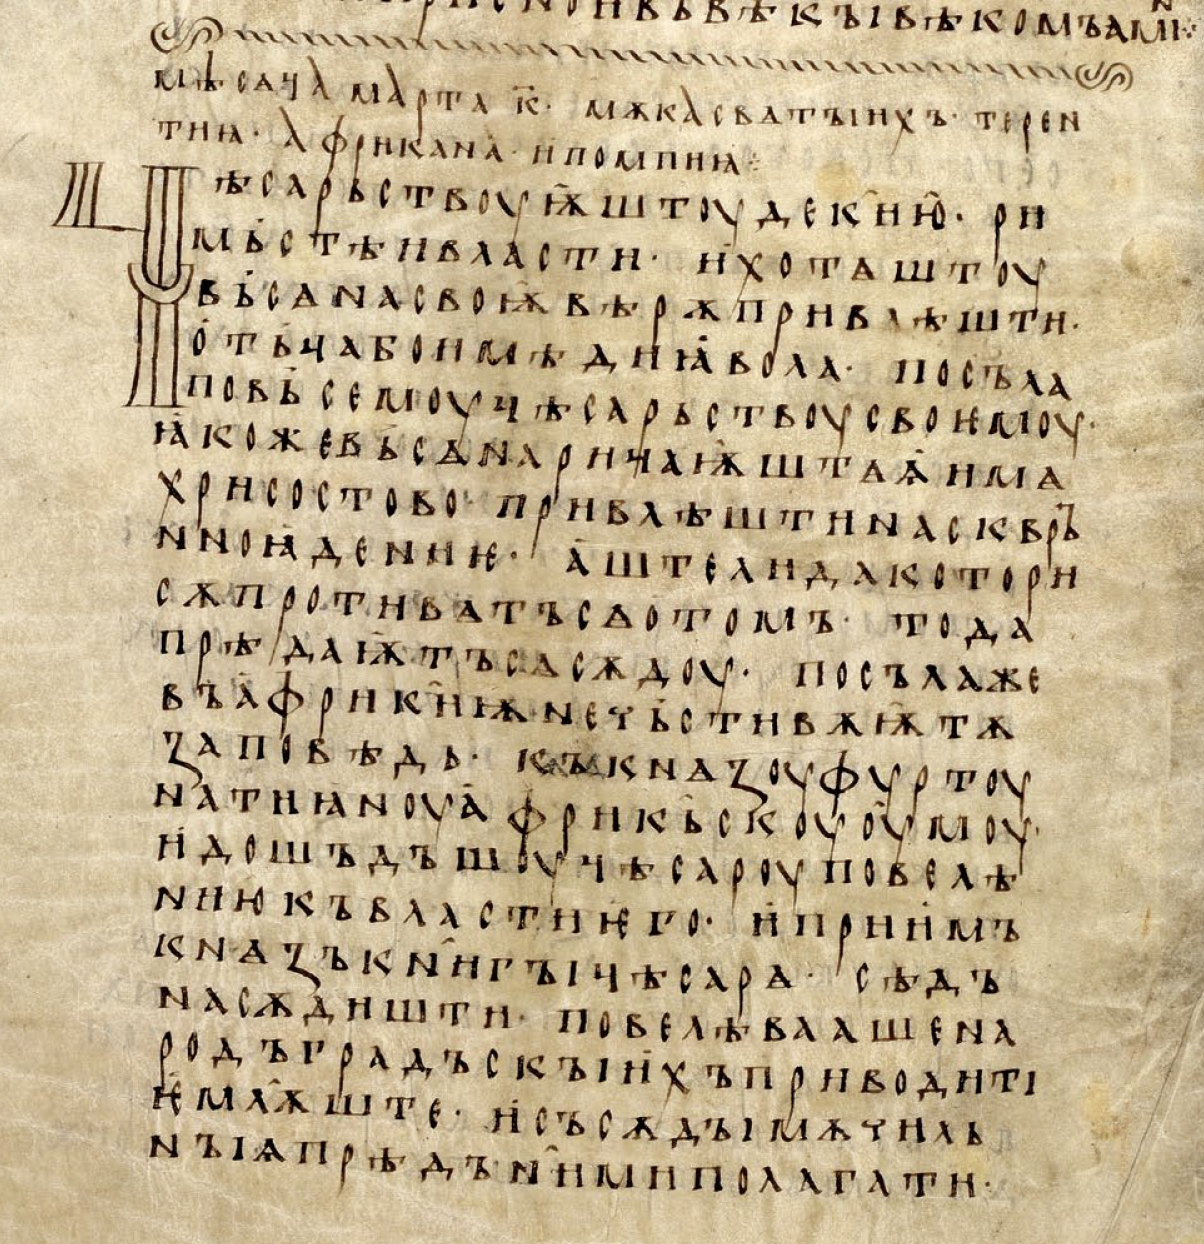 нъвьвѣкъівѣкомъами҃н⁘
мѣсѧцꙗ марта к҃· мѫка свѧтъіихъ· терен
тиꙗ· африкана· и помпиꙗ⁘
Цѣсарьствоуѭштоу декии҆ю· ри
мьстѣи власти· и҆хотѧштоу
вьсѧ на своѭ вѣрѫ привлѣшти·
отьца бо имѣ диꙗвола· посъла
по вьсемоу цѣсарьствоу своемоу·
ꙗкоже вьсѧ нарицаѭштаѧ имѧ
хрисостово· привлѣшти на сквръ
нноꙗдение· аште ли да которий
сѫпротивѧтъ сѧ о томъ· то да
прѣдаѭтъ сѧ сѫдоу· посъла же
въ африкиѭ нечьстивѫѭ тѫ
заповѣдь· къ кнѧзоу фуртоу
натиꙗноу африкьскоуоумоу·
и дошъдъшоу цѣсароу повелѣ
нию къ власти его· и приимъ
кнѧзъ книгъі цѣсарѧ· сѣдъ
на сѫдишти· повелѣвааше на
родъ градъскъіихъ приводити
емлѭште· и съсѫдъі мѫчиль
нъіѧ прѣдъ ними полагати·